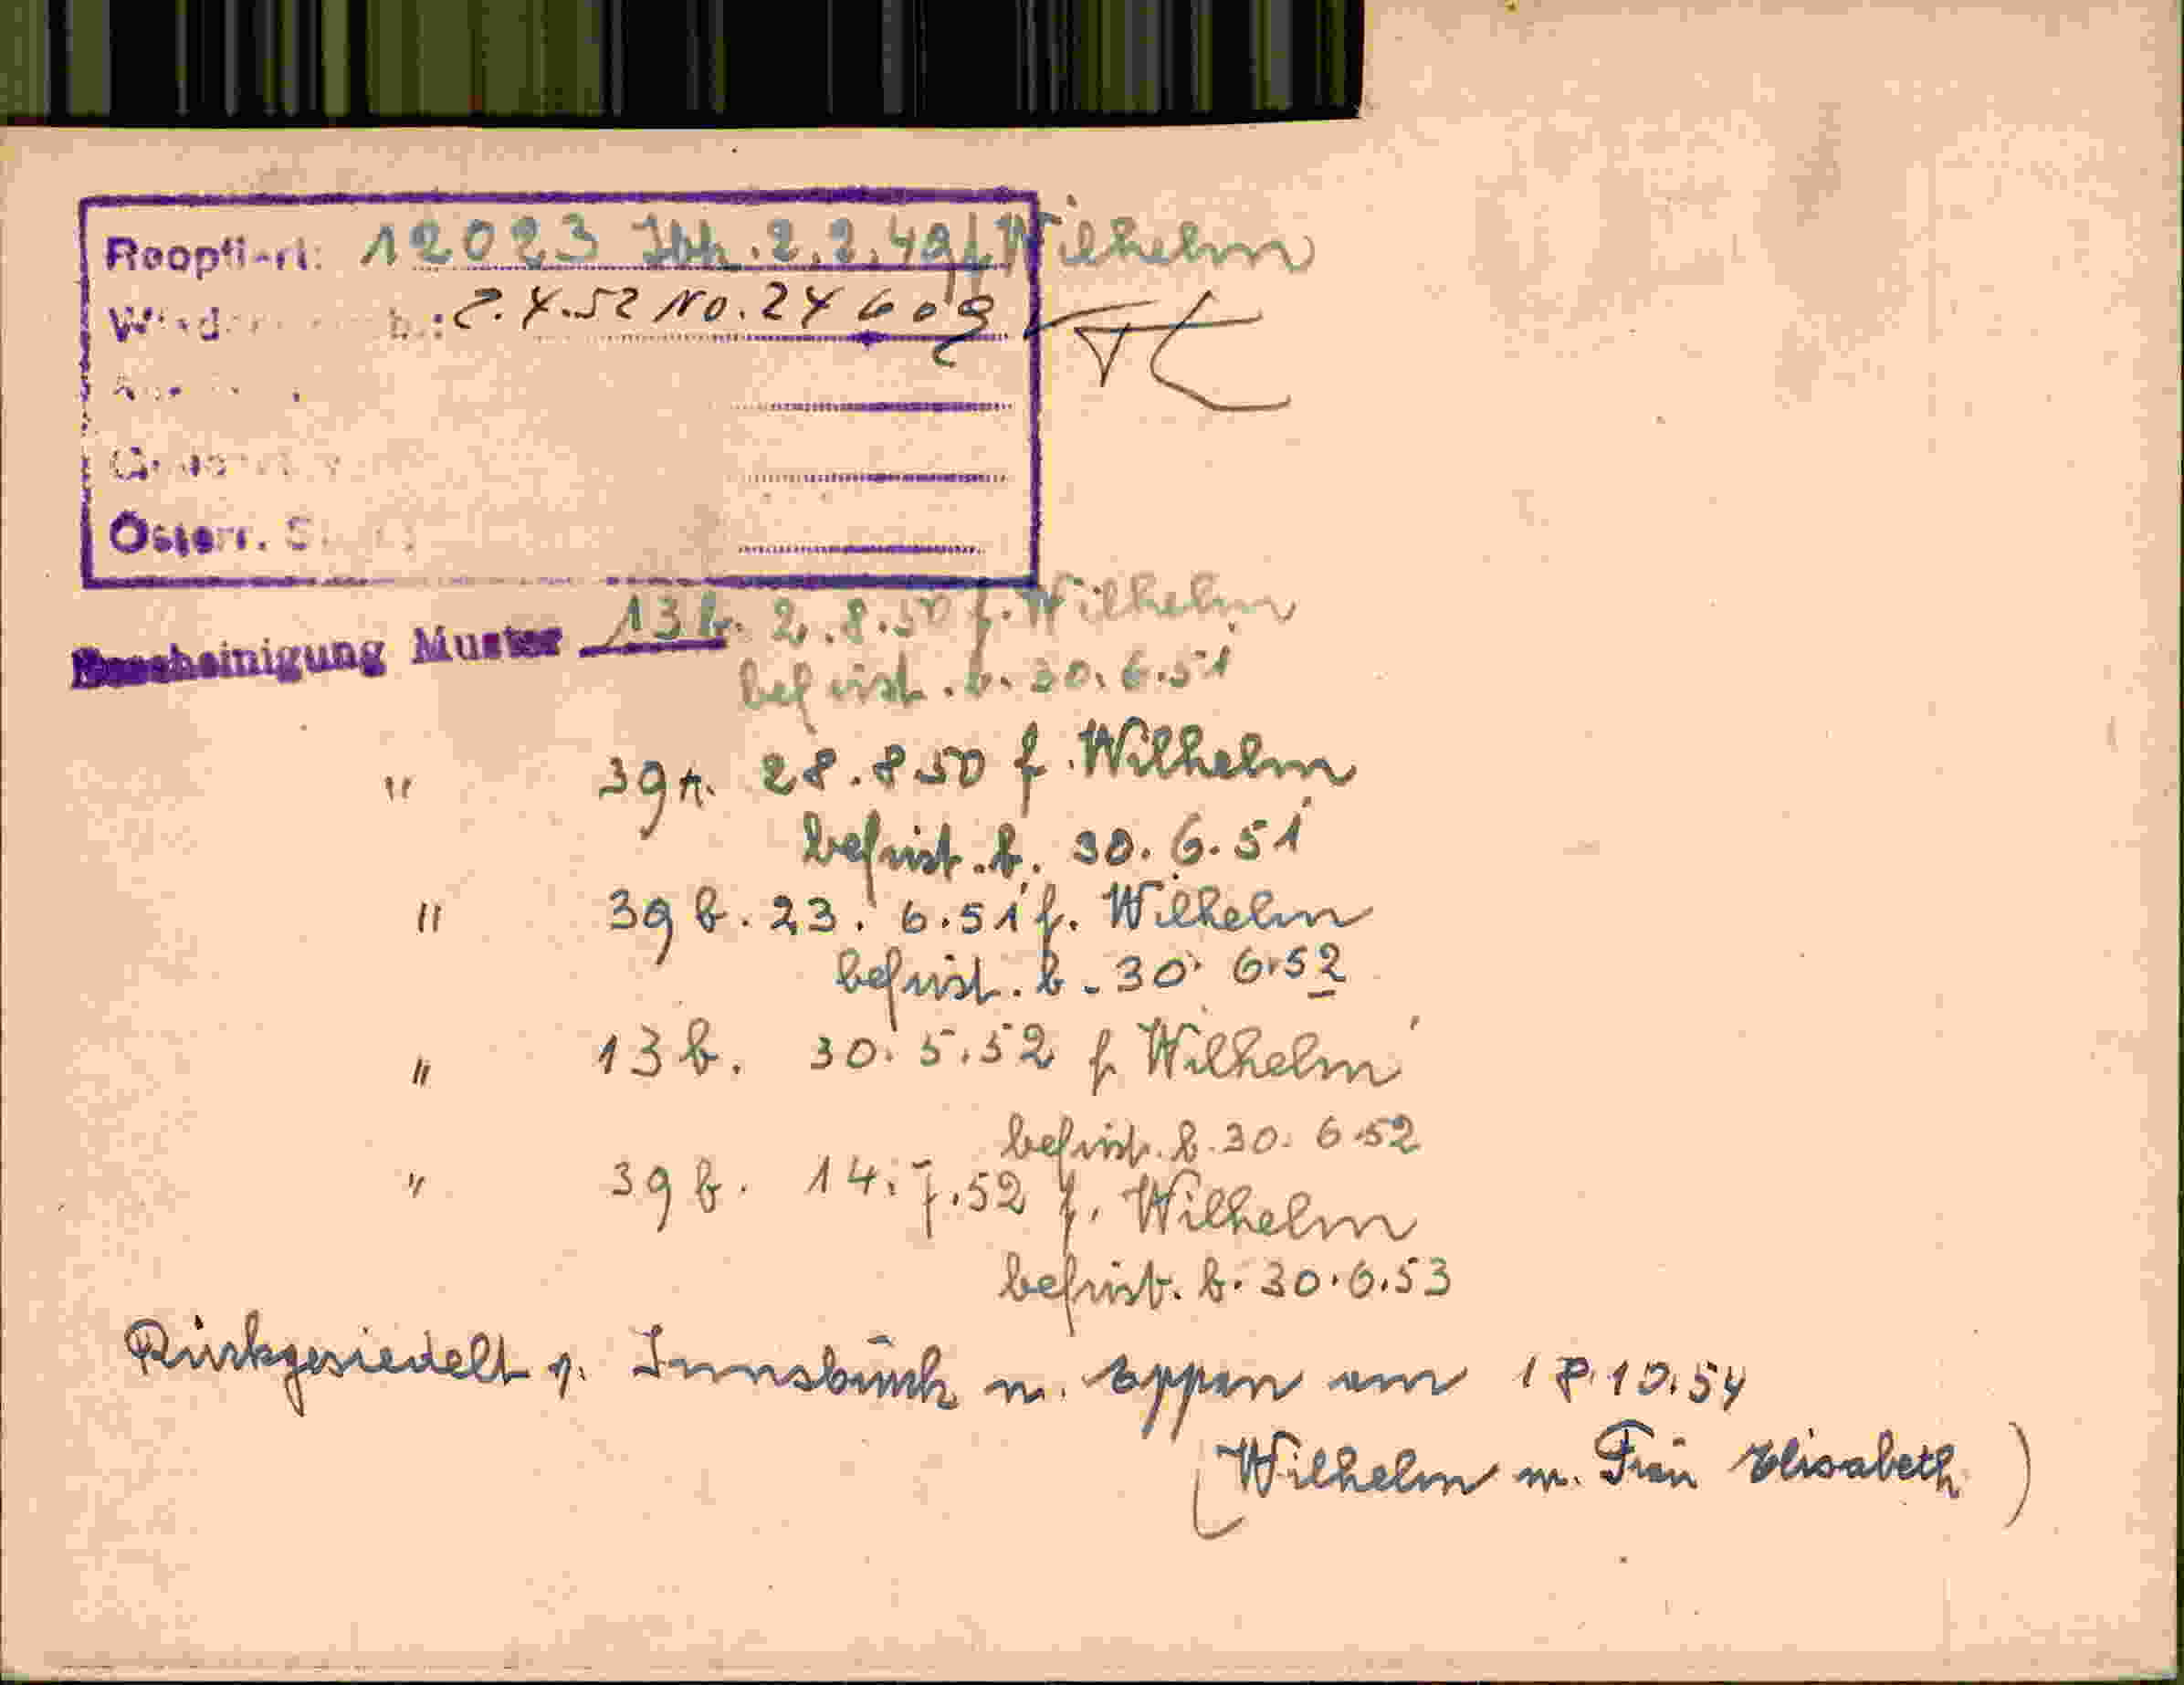 Reoptiert: 12023 Ibk. 2.2.49 f. Wilhelm
2.4.52 No. 24609
Österr. S
Bescheinigung Muster 13b. 2.8.50 f. Wilhelm
befrist. b. 30.6.51
" 39a. 28.8.50 f. Wilhelm
befrist. b. 30.6.51
" 39b. 23.6.51 f. Wilhelm
befrist. b. 30.6.52
" 13b. 30.5.52 f. Wilhelm
befrist. b. 30.6.52
" 39b. 14.7.52 f. Wilhelm
befrist. b. 30.6.53
Rückgesiedelt v. Innsbruck n. Eppan am 18.10.54
(Wilhelm m. Frau Elisabeth)